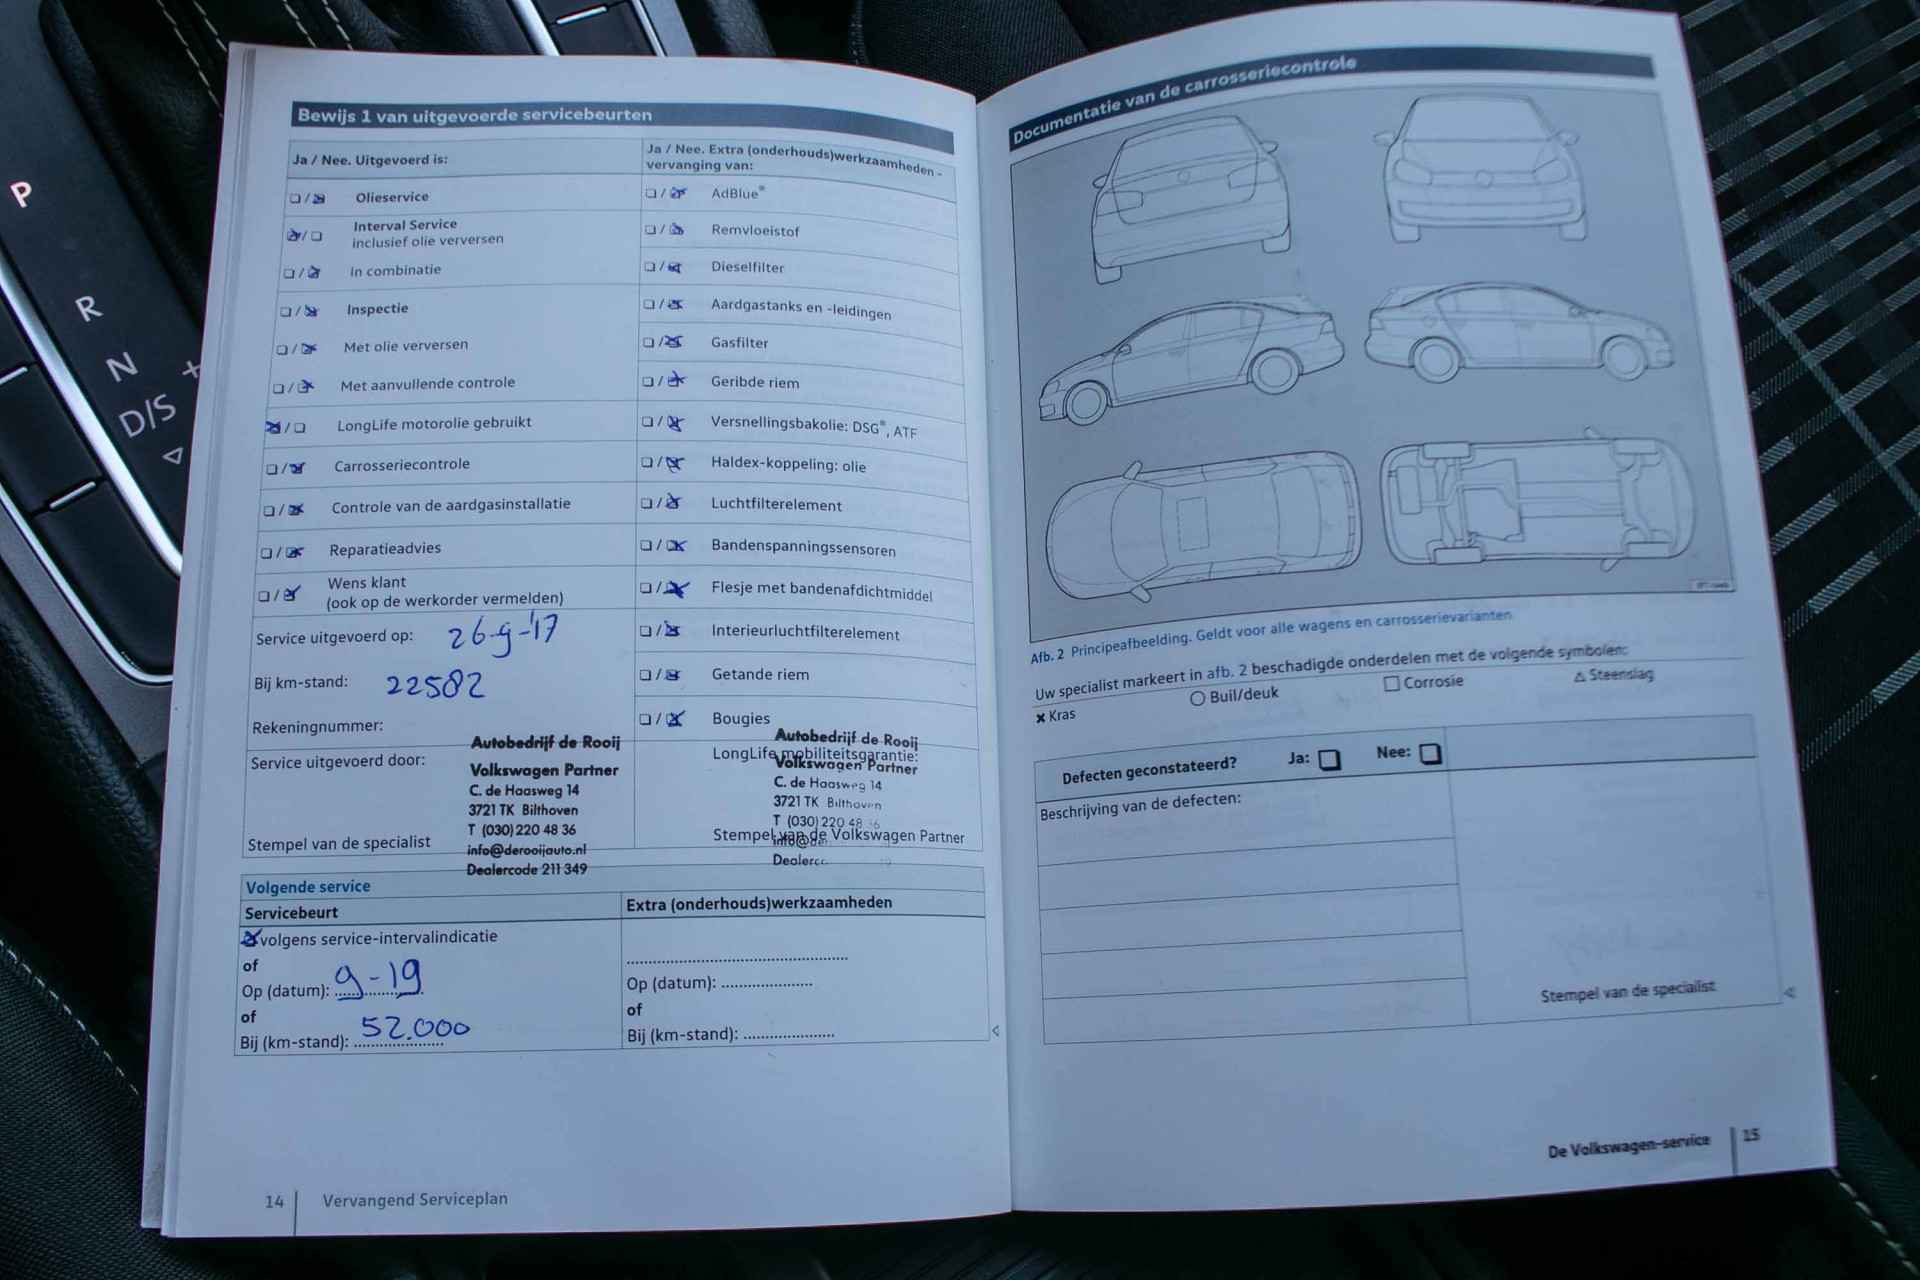 P
R
N
D/S
+
Bewijs 1 van uitgevoerde servicebeurten
Ja / Nee. Uitgevoerd is:
Olieservice
Interval Service
inclusief olie verversen
In combinatie
Inspectie
Met olie verversen
Met aanvullende controle
LongLife motorolie gebruikt
Carrosseriecontrole
Controle van de aardgasinstallatie
Reparatieadvies
Wens klant
(ook op de werkorder vermelden)
Service uitgevoerd op: 26-9-'17
Bij km-stand: 22582
Rekeningnummer:
Service uitgevoerd door:
Autobedrijf de Rooij
Volkswagen Partner
C. de Haasweg 14
3721 TK Bilthoven
T (030) 220 48 36
info@derooijauto.nl
Dealercode 211 349
Stempel van de specialist
Ja / Nee. Extra (onderhouds)werkzaamheden -
vervanging van:
AdBlue®
Remvloeistof
Dieselfilter
Aardgastanks en -leidingen
Gasfilter
Geribde riem
Versnellingsbakolie: DSG®, ATF
Haldex-koppeling: olie
Luchtfilterelement
Bandenspanningssensoren
Flesje met bandenafdichtmiddel
Interieurluchtfilterelement
Getande riem
Bougies
Autobedrijf de Rooij
LongLife mobiliteitsgarantie:
Volkswagen Partner
C. de Haasweg 14
3721 TK Bilthoven
T (030) 220 48 36
Stempel van de Volkswagen Partner
Volgende service
Servicebeurt
volgens service-intervalindicatie
of
Op (datum): 9-19
of
Bij (km-stand): 52.000
Extra (onderhouds)werkzaamheden
Op (datum): ....................
of
Bij (km-stand): ....................
14 Vervangend Serviceplan
Documentatie van de carrosseriecontrole
Afb. 2 Principeafbeelding. Geldt voor alle wagens en carrosserievarianten
Uw specialist markeert in afb. 2 beschadigde onderdelen met de volgende symbolen:
Kras
Buil/deuk
Corrosie
Steenslag
Defecten geconstateerd? Ja: Nee:
Beschrijving van de defecten:
Stempel van de specialist
De Volkswagen-service 15